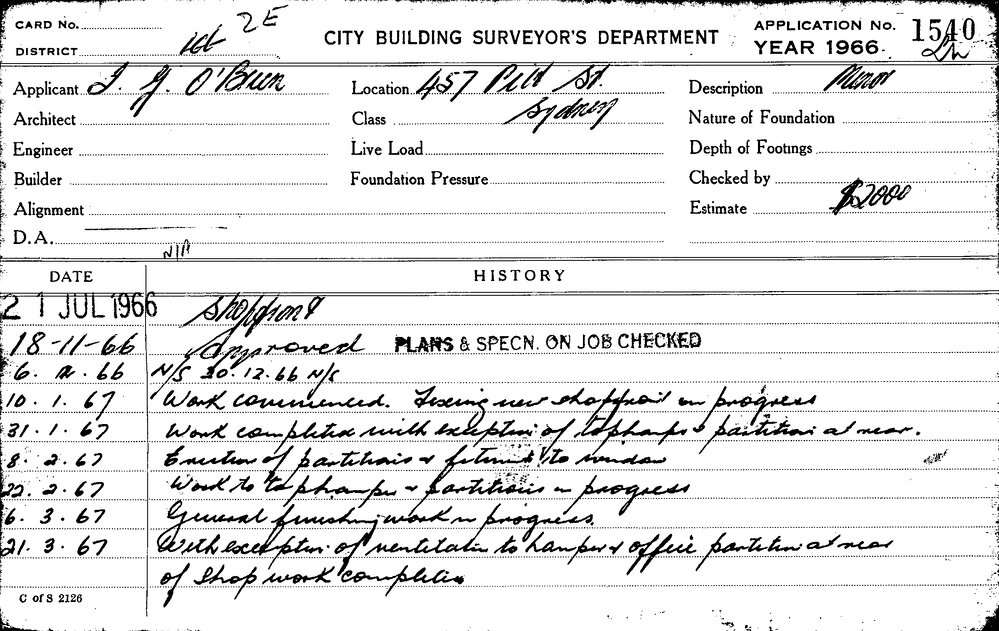 CARD No.
DISTRICT
2E
CITY BUILDING SURVEYOR'S DEPARTMENT
APPLICATION No. 1540
YEAR 1966.
Applicant J. G. O'Brien
Location 457 Pitt St.
Sydney
Description Minor
Architect
Class
Nature of Foundation
Engineer
Live Load
Depth of Footings
Builder
Foundation Pressure
Checked by
Alignment
Estimate $2000
D.A. N/A
DATE HISTORY
21 JUL 1966 Shopfront
18-11-66 Approved PLANS & SPECN. ON JOB CHECKED
6. 12. 66 N/S 30.12.66 N/S
10. 1. 67 Work commenced. Fixing new shopfront in progress
31. 1. 67 Work completed with exception of tophamper & partition at rear.
8. 2. 67 Erection of partitions & to window
22. 2. 67 Work to tophamper & partitions in progress
6. 3. 67 General finishing work in progress.
21. 3. 67 With exception of ventilation to hamper & office partition at rear
of shop work completed
C of S 2126